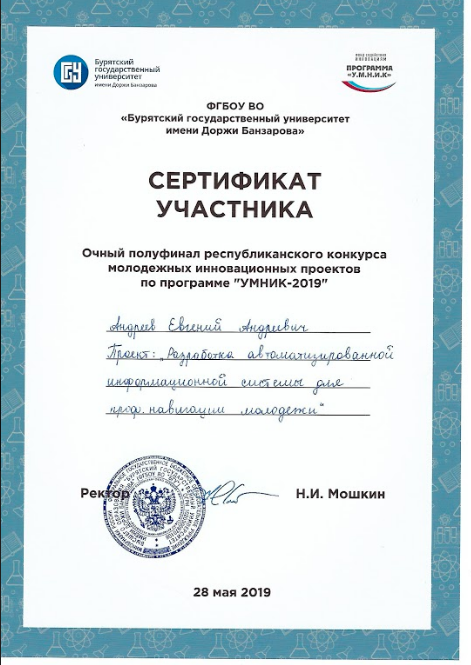 Бурятский
государственный
университет
имени Доржи Банзарова
ПРОГРАММА
«У.М.Н.И.К»
ФГБОУ ВО
«Бурятский государственный университет
имени Доржи Банзарова»
СЕРТИФИКАТ
УЧАСТНИКА
Очный полуфинал республиканского конкурса
молодежных инновационных проектов
по программе "УМНИК-2019"
Андреев Евгений Андреевич
Проект: „Разработка автоматизированной
информационной системы для
проф. навигации молодежи"
Ректор
Н.И. Мошкин
28 мая 2019